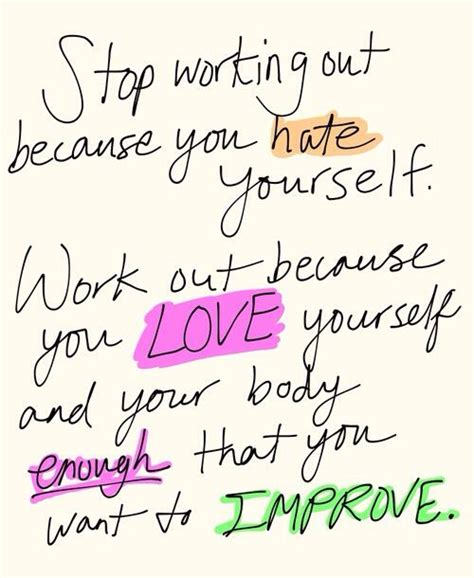 Stop working out
because you hate
yourself.
Work out because
you LOVE yourself
and your body
enough that you
want to IMPROVE.